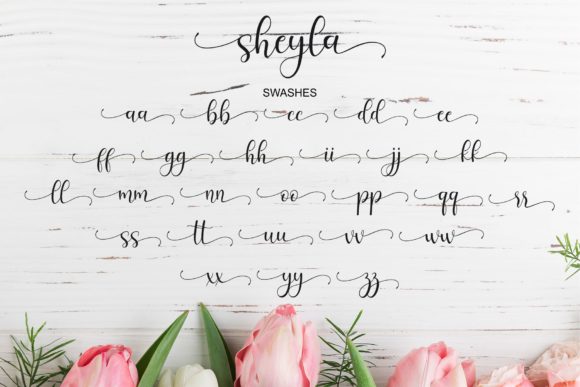 sheyla
SWASHES
aa bb cc dd ee
ff gg hh ii jj kk
ll mm nn oo pp qq rr
ss tt uu vv ww
xx yy zz